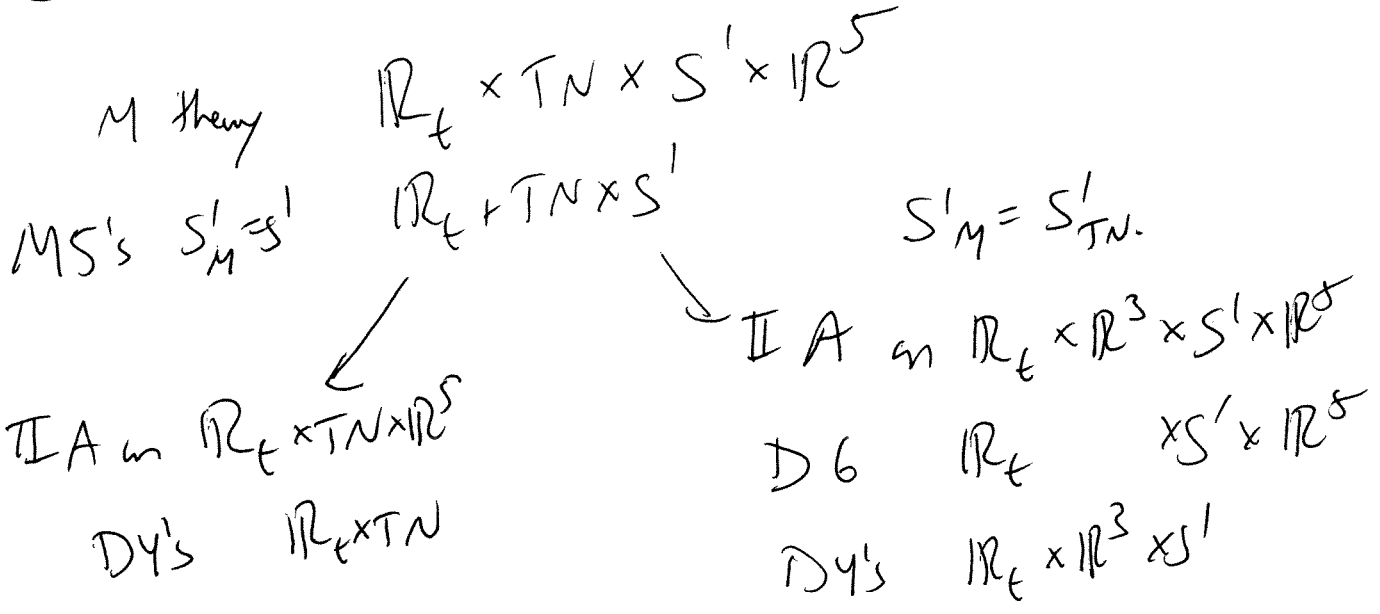 M theory ℝ_t × TN × S¹ × ℝ⁵
M5's S¹_M = S¹ ℝ_t × TN × S¹
S¹_M = S¹_TN.
IIA on ℝ_t × TN × ℝ⁵
D4's ℝ_t × TN
IIA on ℝ_t × ℝ³ × S¹ × ℝ⁵
D6 ℝ_t × S¹ × ℝ⁵
D4's ℝ_t × ℝ³ × S¹